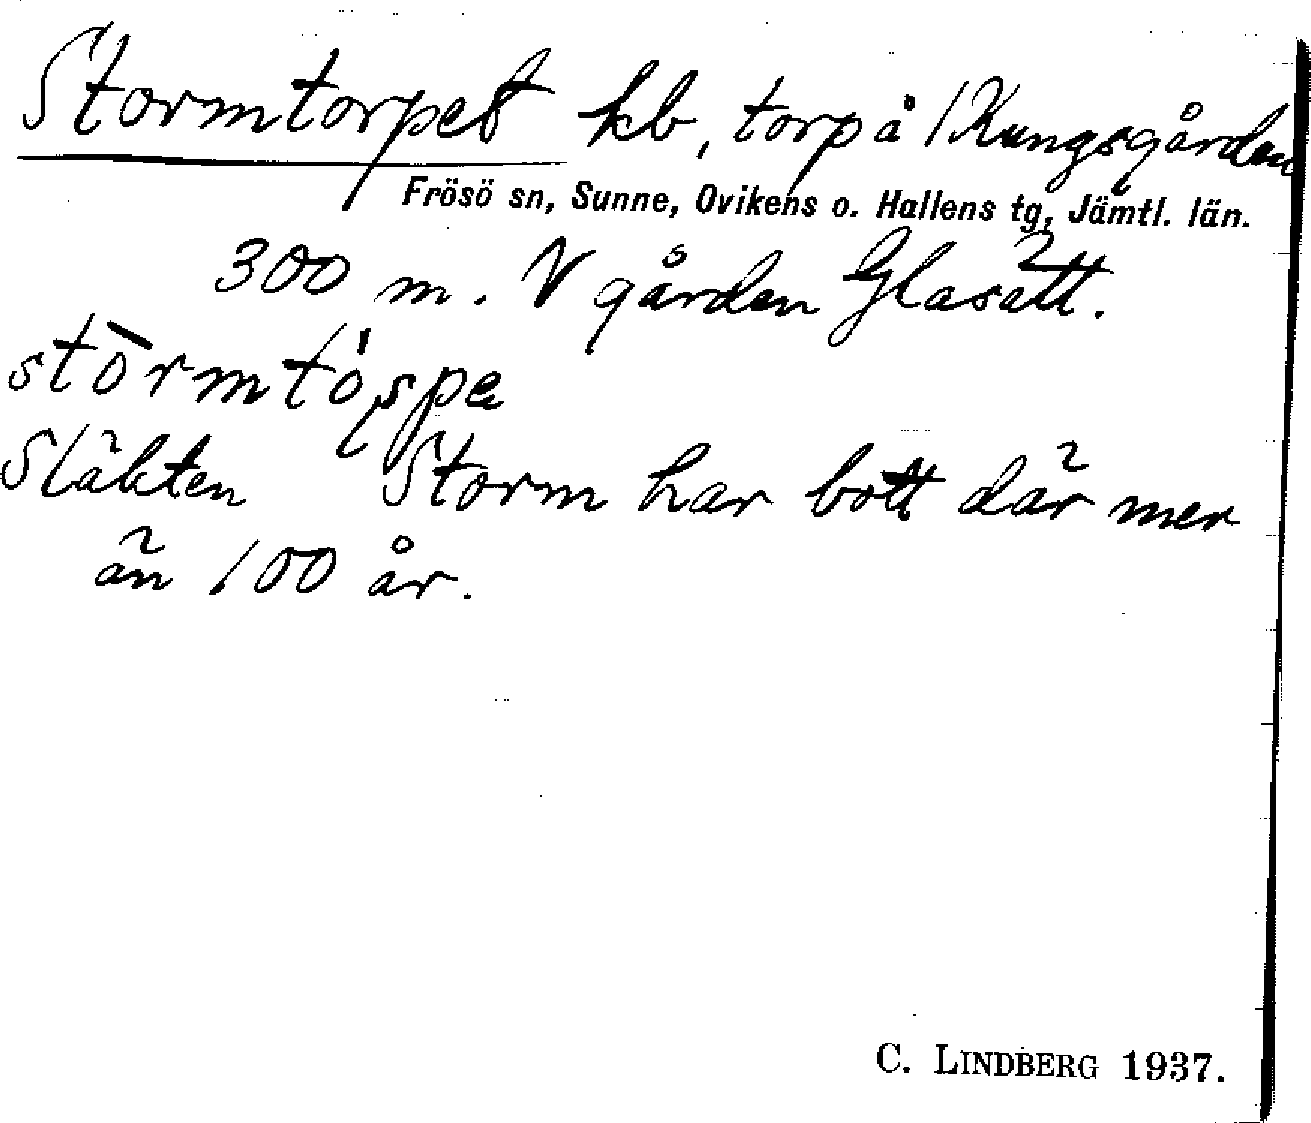 Stormtorpet kb, torp å /Kungsgården
Frösö sn, Sunne, Ovikens o. Hallens tg, Jämtl. län.
300 m. V gården Glasätt.
Släkten Storm har bott där mer
än 100 år.
C. LINDBERG 1937.